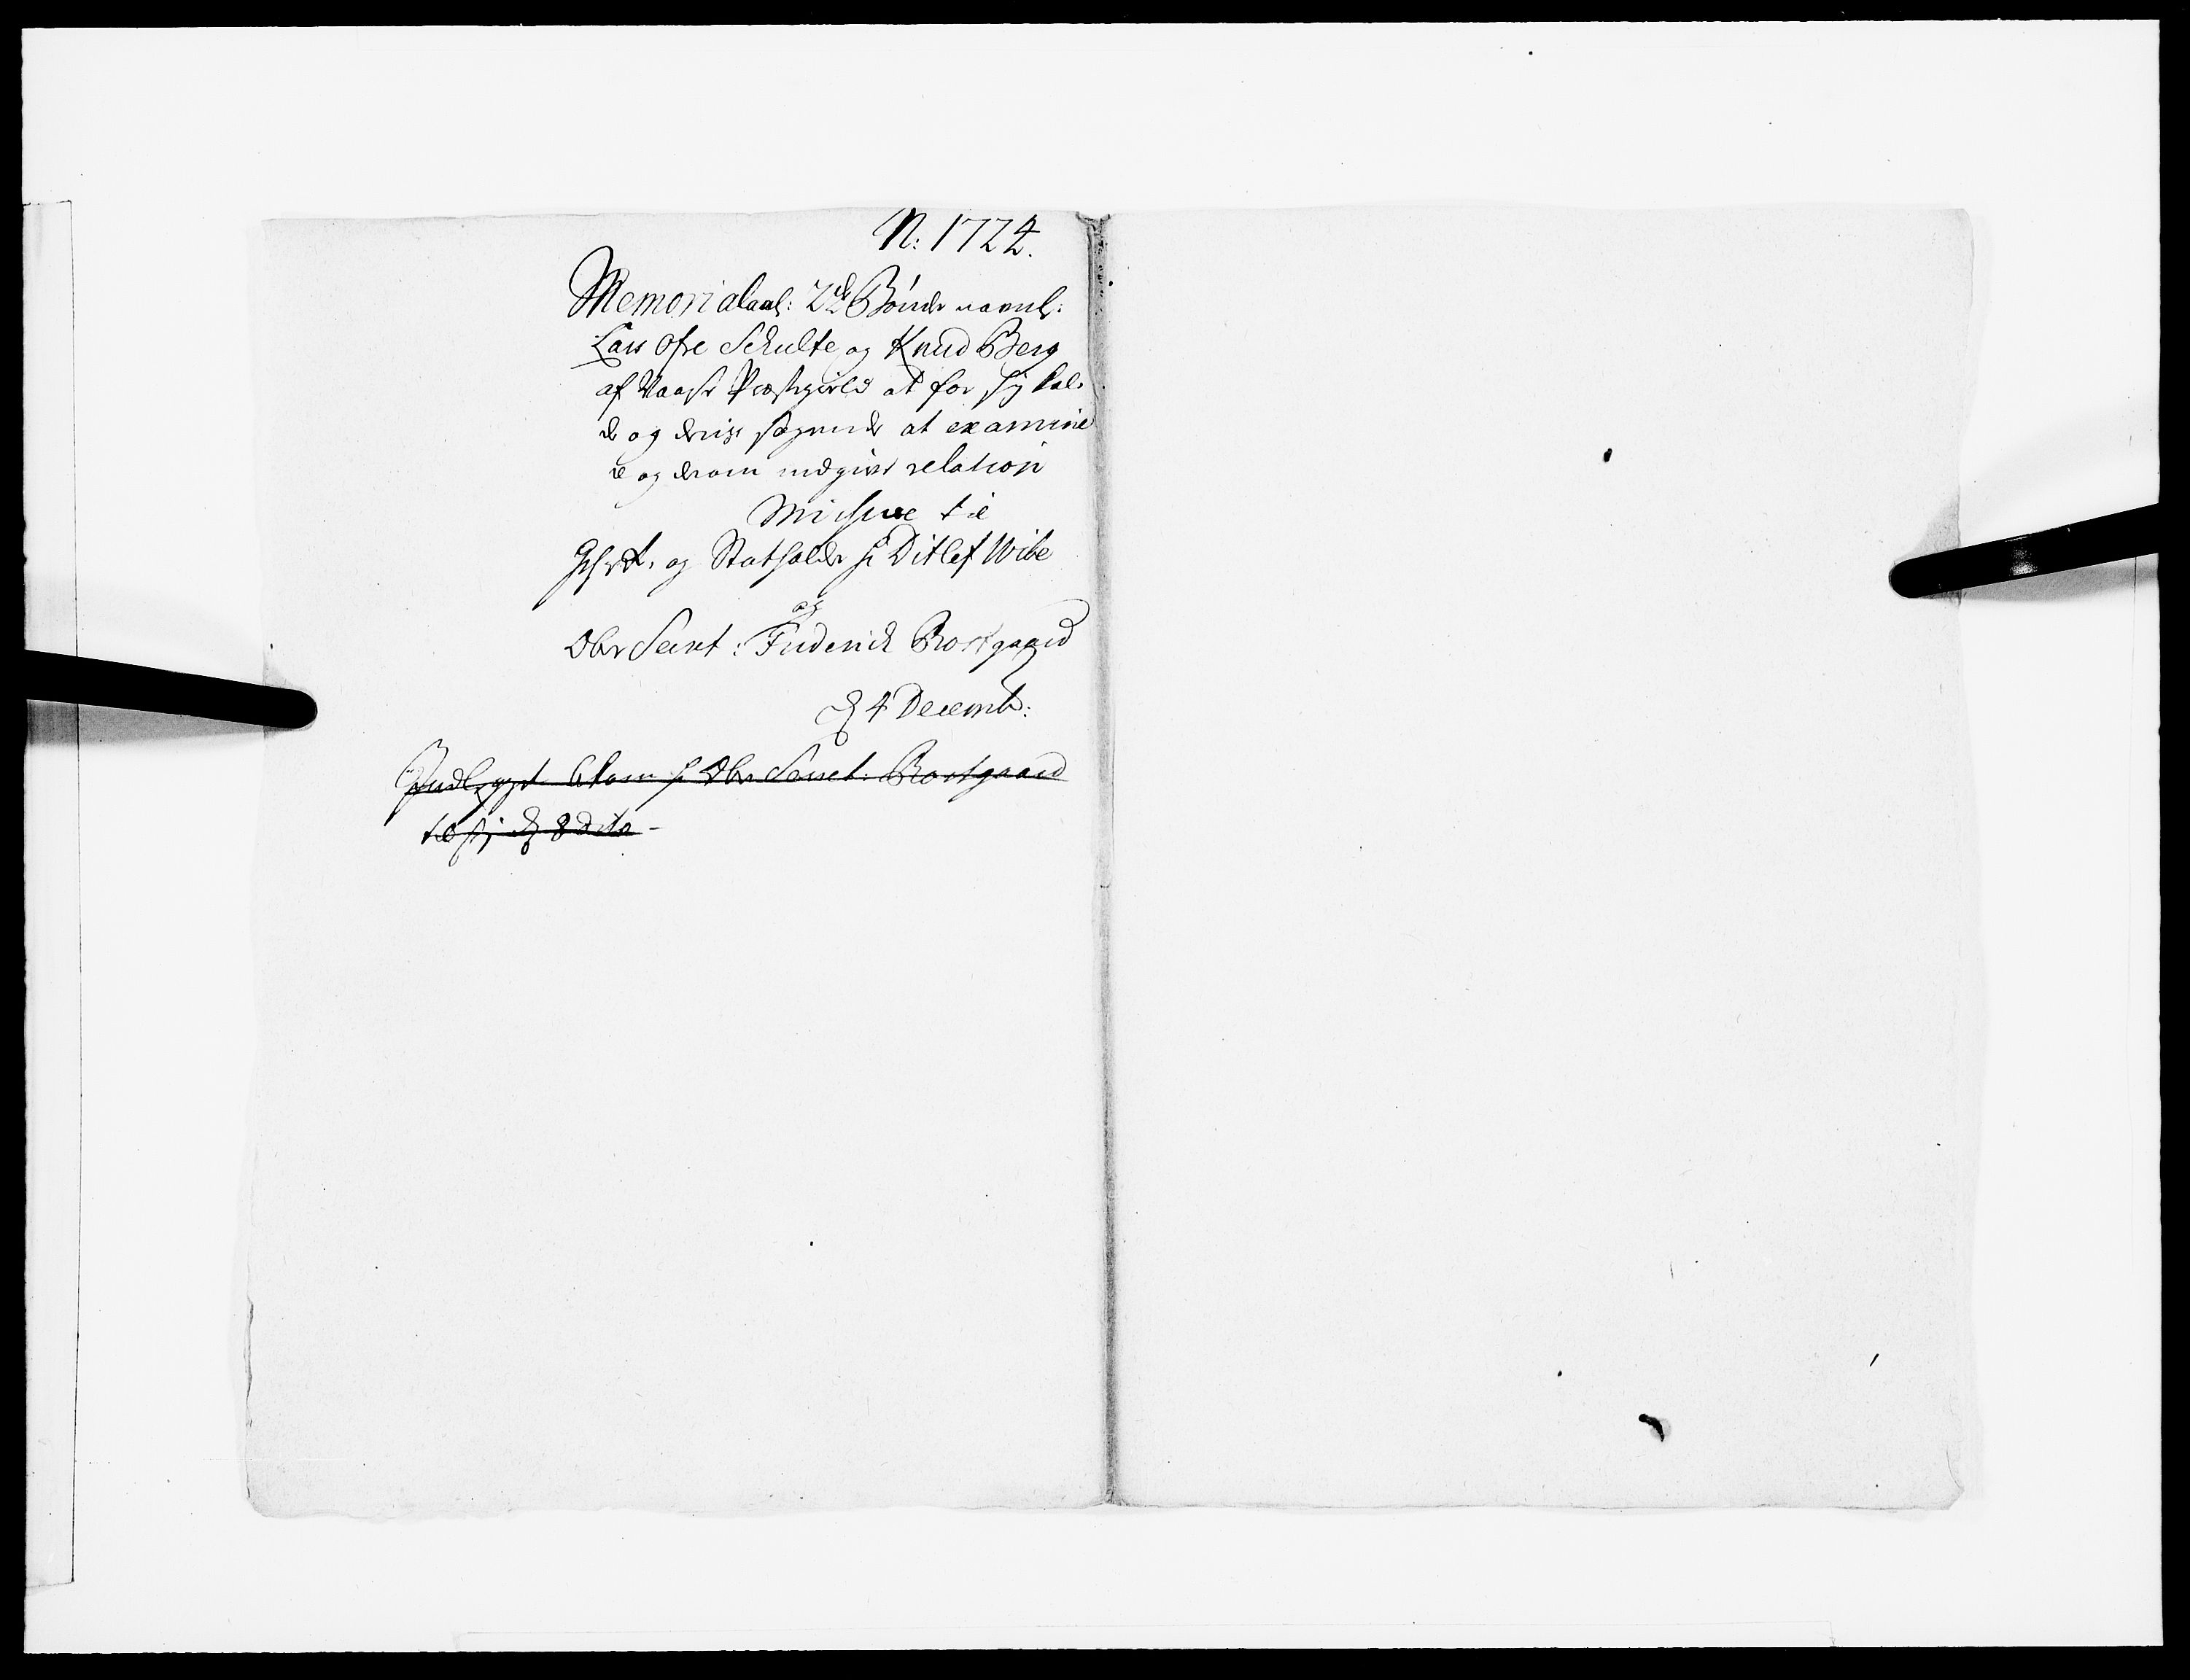 N: 1724.
Memorial aal: 2de Bönder navnl:
Lars Ofre Schulte og Knud Berg
af Vaage Præstegield at for sig kal-
de og deris søgende at examine
re og derom indgive relation
Missive til
Ghr. og Statholder hr Ditlef Wibe
og
Ober Secret: Friderich Rostgaard
d 4 Decemb:
hr Ober Secret: Rostgaard
til sig d 8 dito -